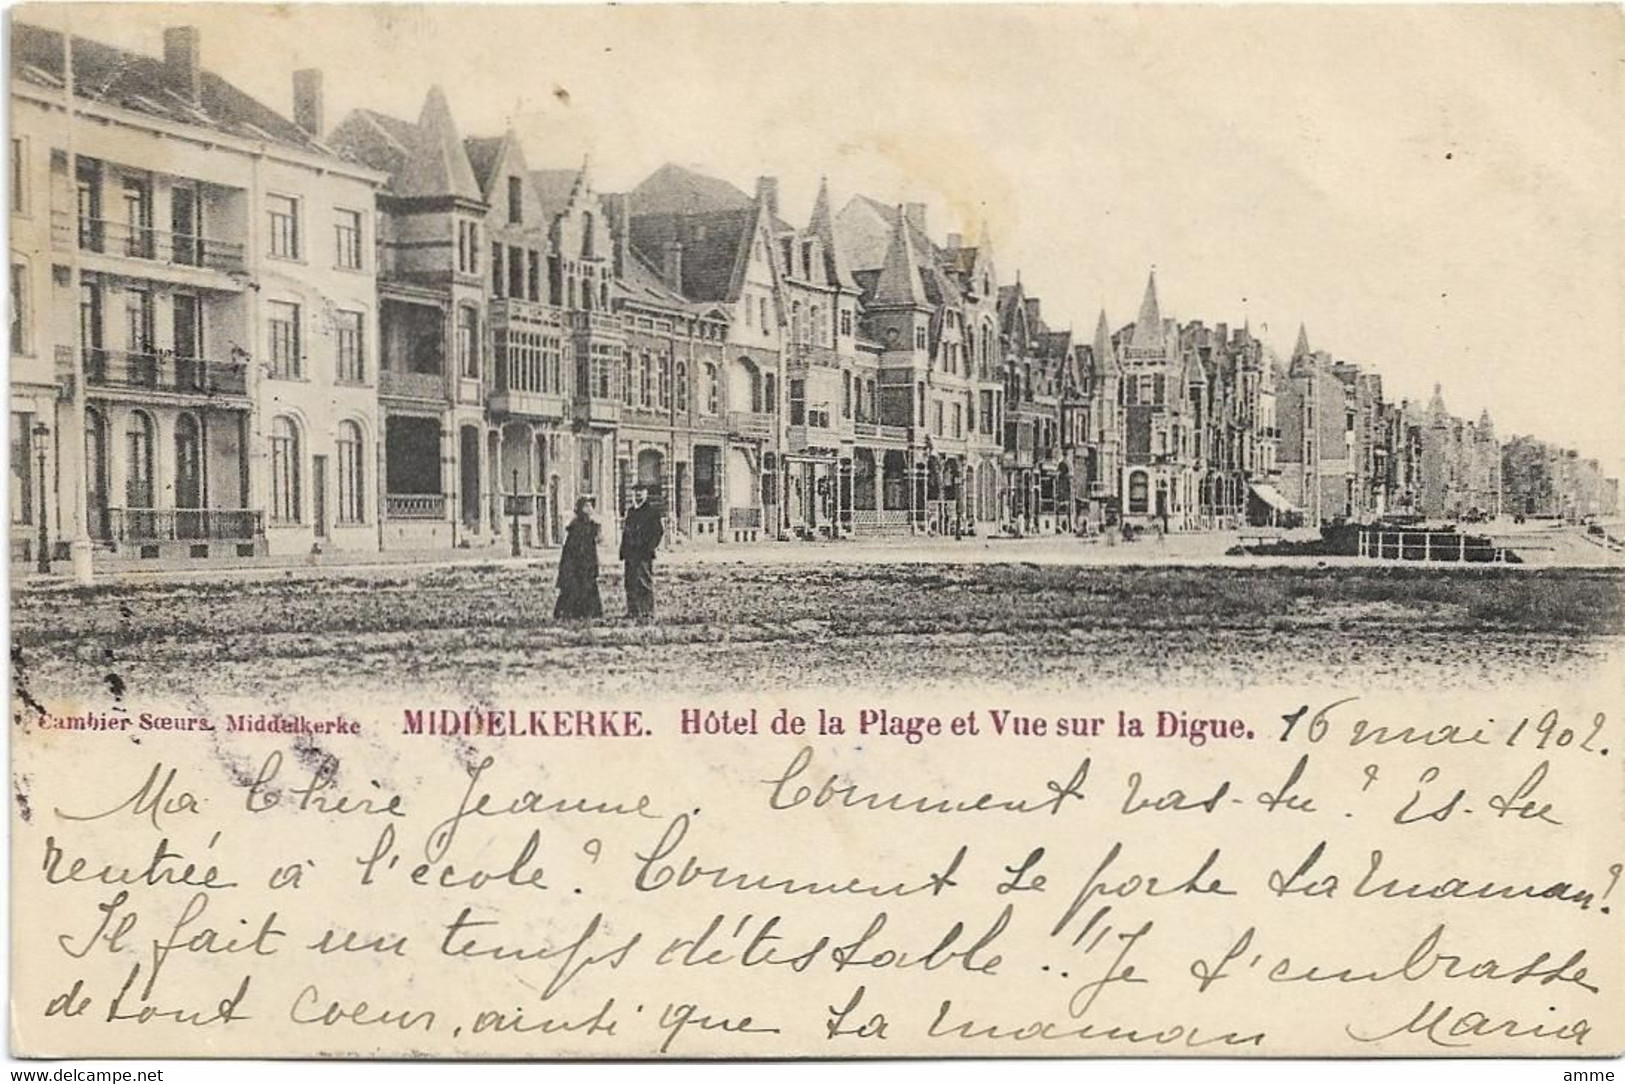 Cambier Sœurs. Middelkerke MIDDELKERKE. Hôtel de la Plage et Vue sur la Digue. 16 mai 1902.
Ma Chère Jeanne. Comment vas-tu? Es-tu
rentrée à l'école? Comment se porte ta maman?
Il fait un temps détestable!! Je t'embrasse
de tout coeur, ainsi que ta maman Maria
www.delcampe.net
amme